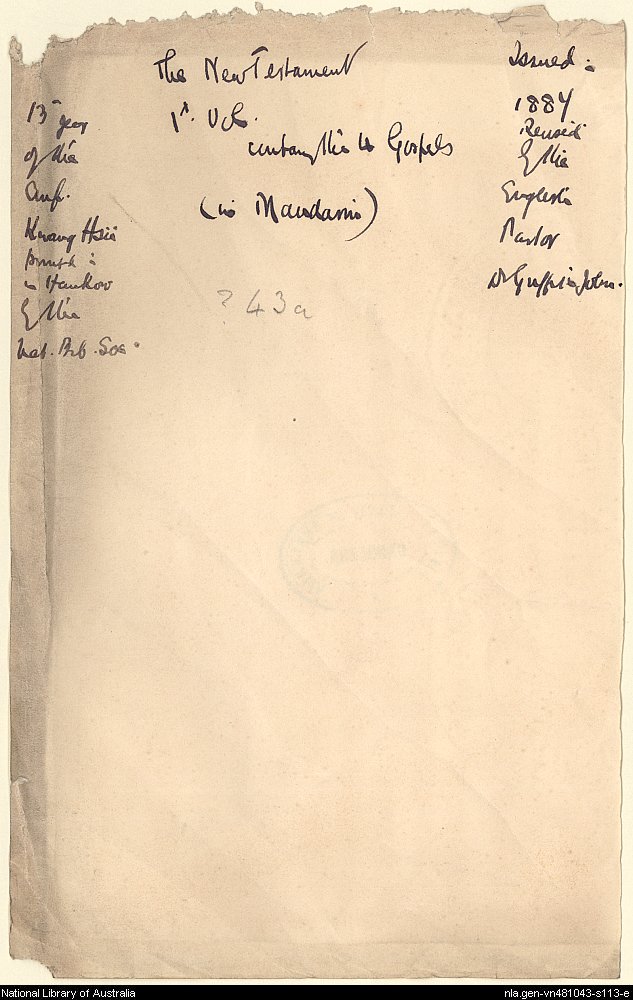 The New Testament
1st. Vol.
containg the 4 Gospels
(in Mandarin)
13th year
of the
Emp.
Kwang Hsü
Printed :
in Hankow
by the
Nat. Bib. Soc.
Issued :
1884
Revised
by the
English
Pastor
Dr Griffith John.
? 43a
National Library of Australia
nla.gen-vn481043-s113-e